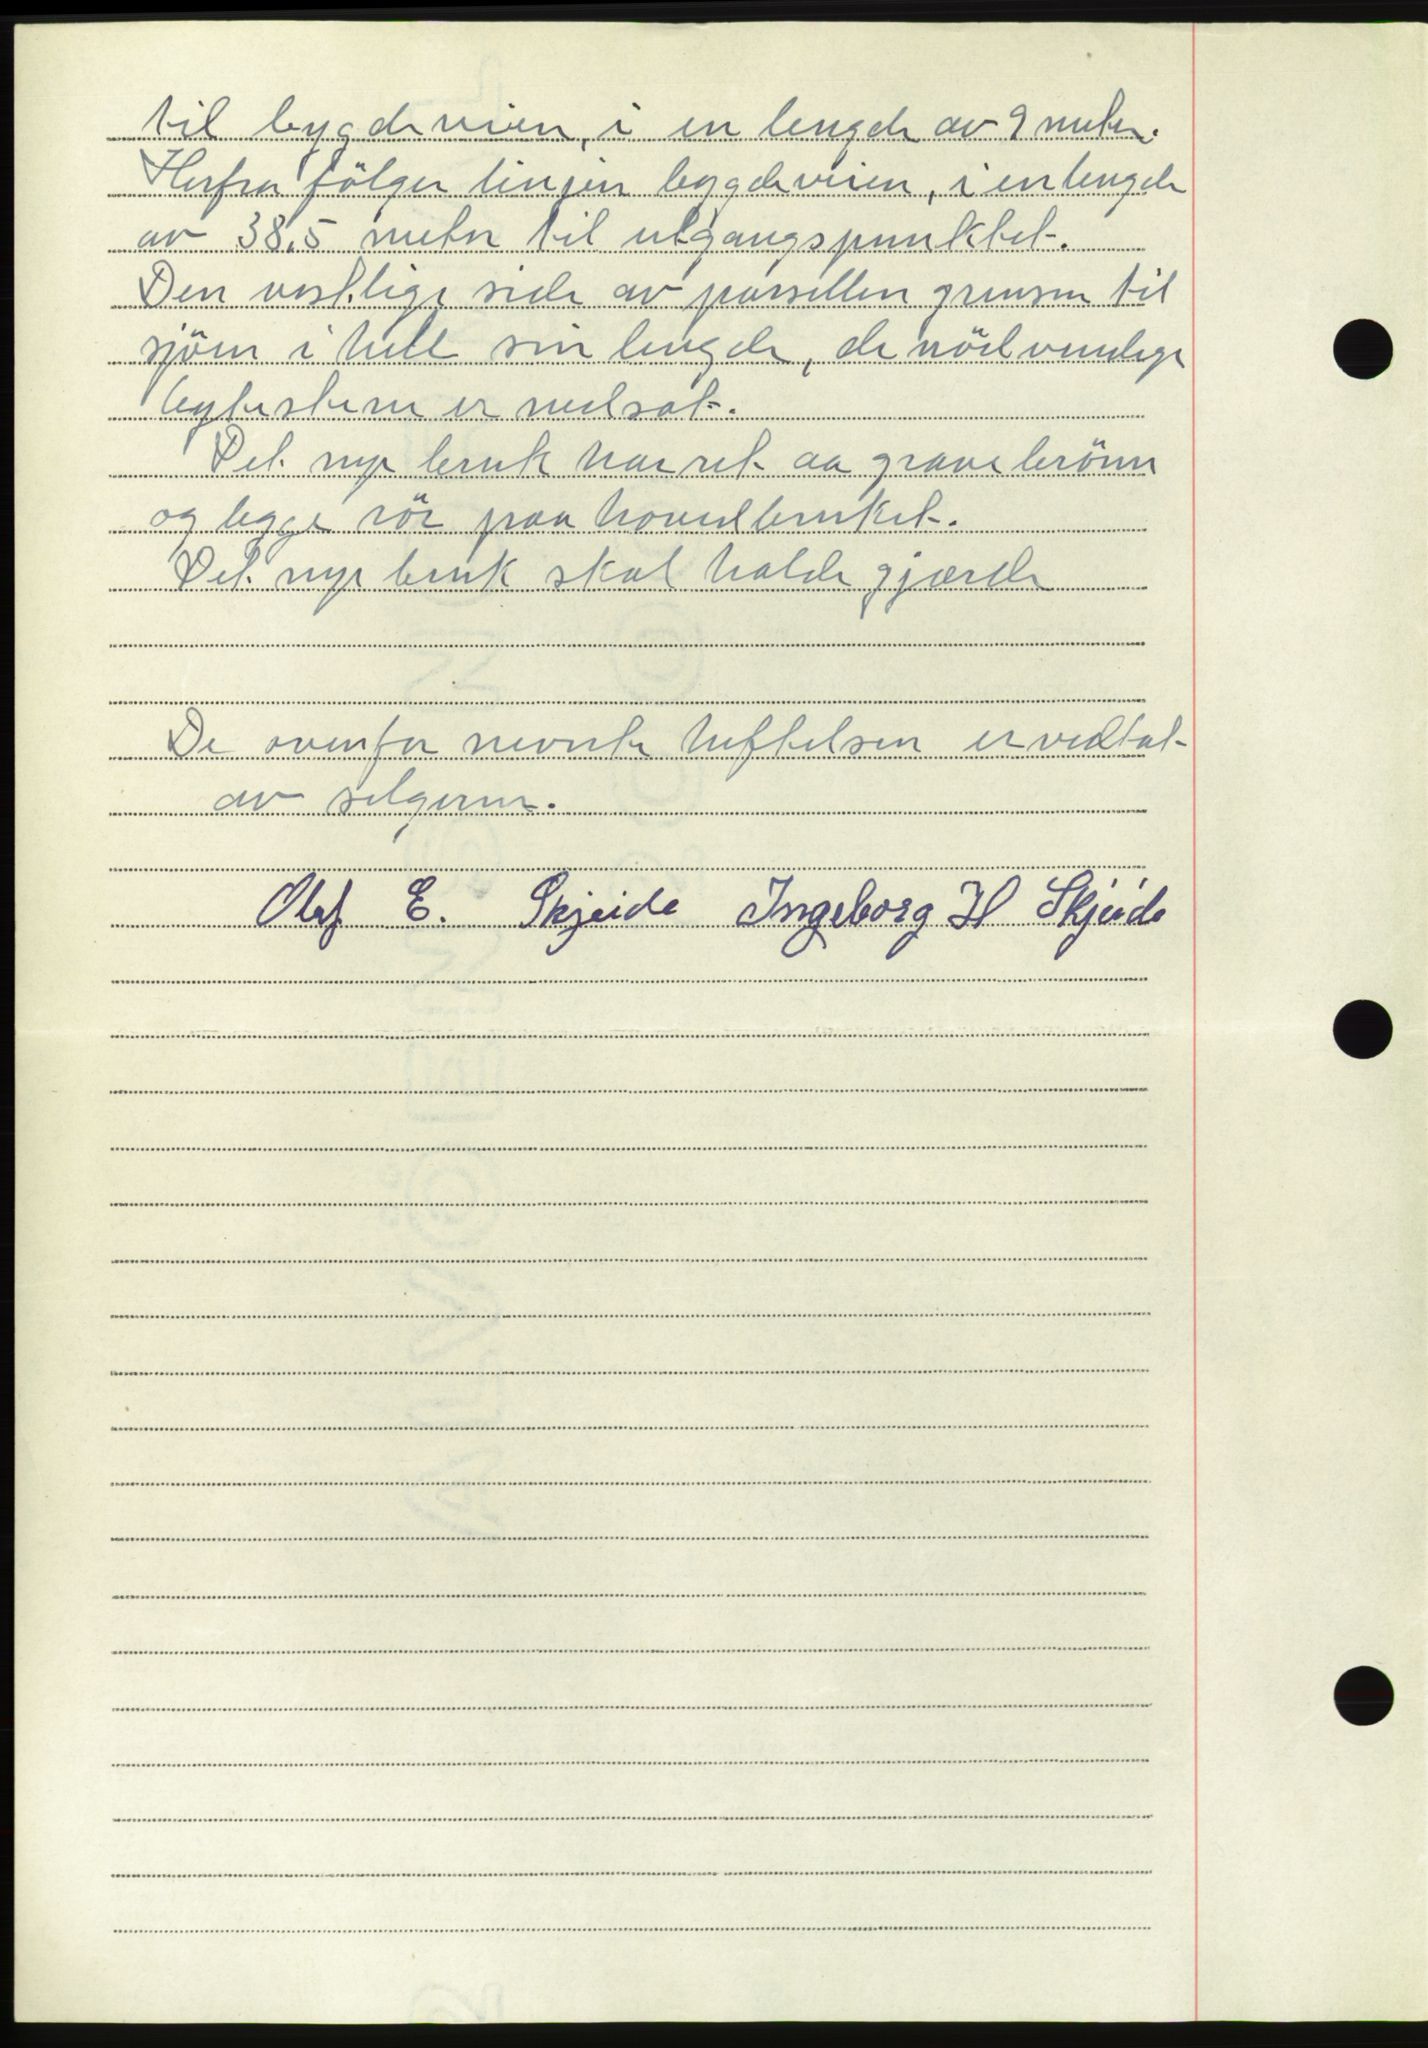 til bygdeveien, i en lengde av 9 meter.
Herfra følger linjen bygdeveien, i en lengde
av 38,5 meter til utgangspunktet.
Den vestlige side av parsellen grenser til
sjöen i hele sin lengde, de nödvendige
bytestene er nedsat.
Det nye bruk har ret aa grave brönn
og legge rör paa hovedbruket.
Det nye bruk skal holde gjærde
De ovenfor nevnte heftelsen er vedtat
av selgerne.
Olaf E. Skjeide Ingeborg H Skjeide